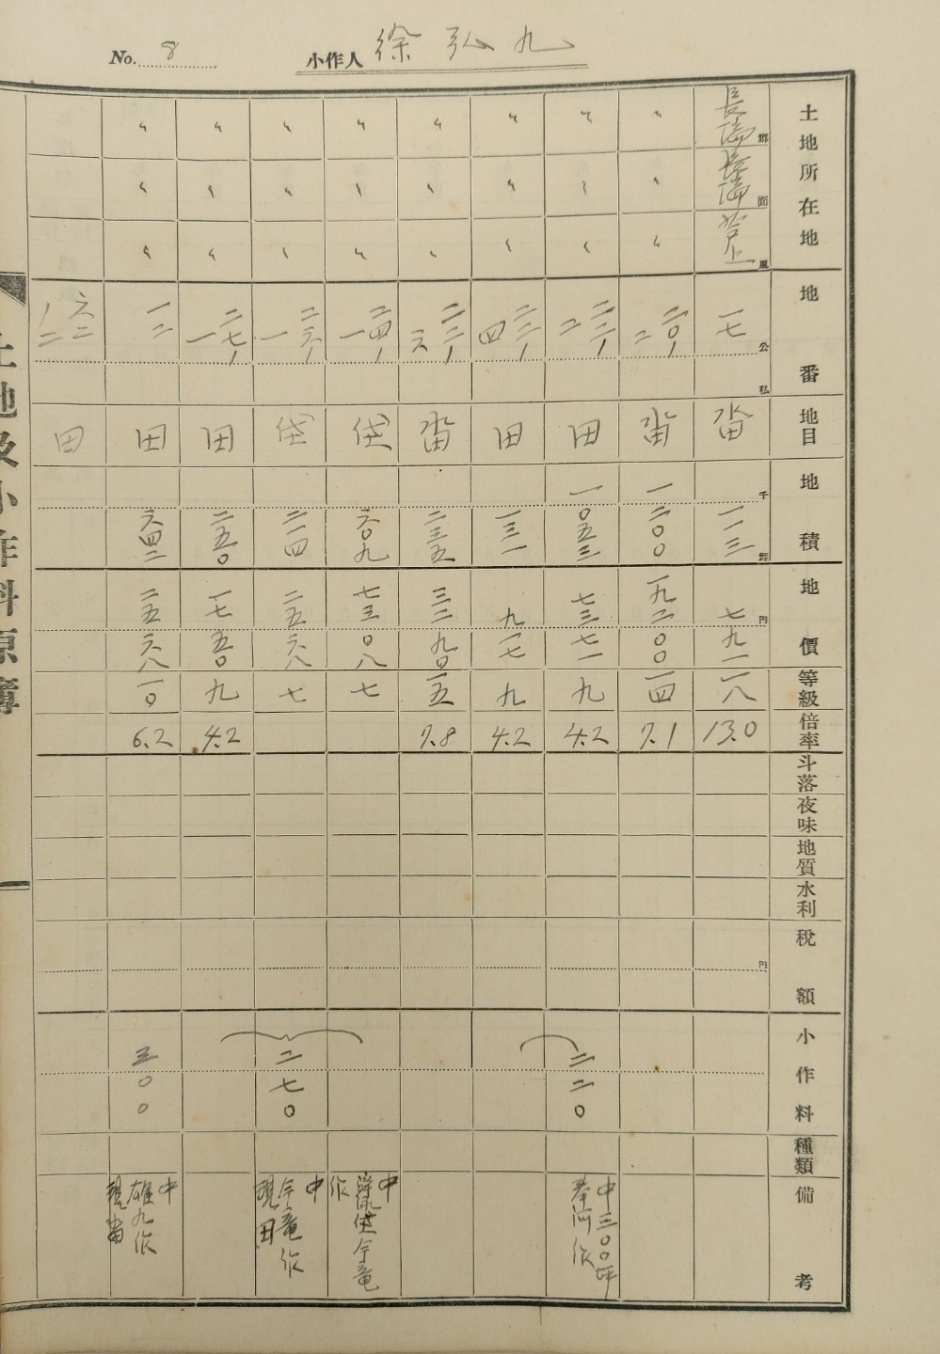 No. 8 小作人 徐弘九
土地所在地 地番 地目 地積 地價 等級 倍率 斗落 夜味 地質 水利 稅額 小作料 種類 備考
郡 面 里 公 私 千 坪 円 円
長湍 長湍 一七 畓 一一三 七 九一 一八 13.0
〃 〃 〃 二〇ノ二 畓 一 二〇〇 一九二 〇〇 一四 7.1
〃 〃 〃 二二ノ二 田 一 〇五三 七三 七一 九 4.2 二二〇 中三〇〇坪 奉河作
〃 〃 〃 二二ノ四 田 一三一 九 一七 九 4.2
〃 〃 〃 二二ノ六 畓 二三五 三二 九〇 一五 7.8
〃 〃 〃 二四ノ一 垈 六〇九 七三 〇八 七 中
〃 〃 〃 二六ノ一 垈 二一四 二五 六八 七 二七〇 中 今竜作 現田
〃 〃 〃 二七ノ一 田 二五〇 一七 五〇 九 4.2
〃 〃 〃 一二 田 六四二 二五 六八 一〇 6.2 三〇〇 中 雄九作 現畓
六二ノ二 田
土地及小作料原簿